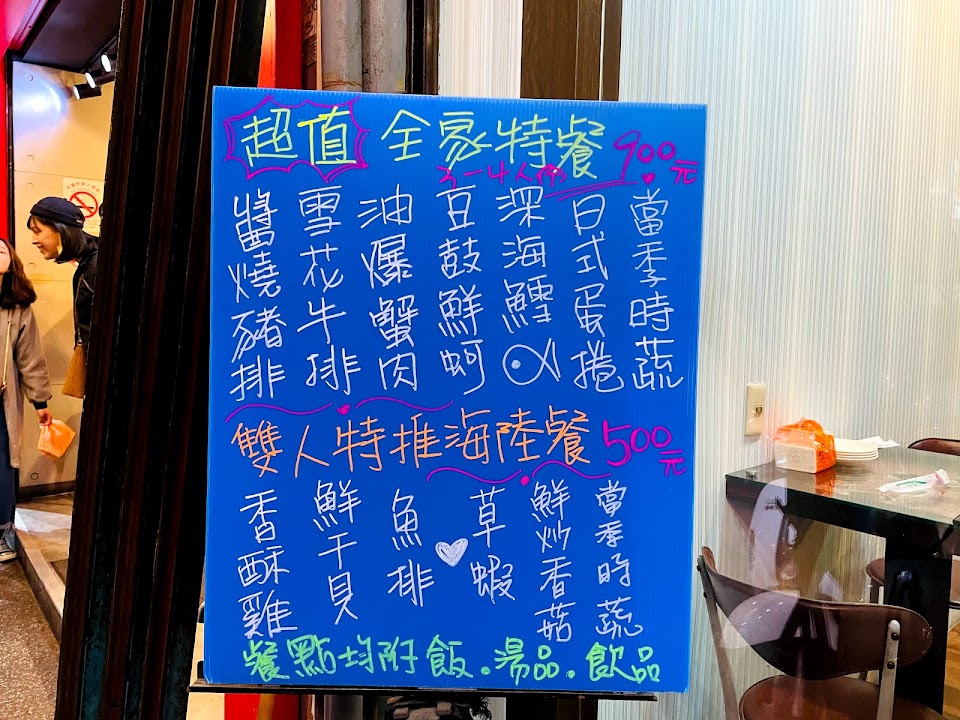 超值 全家特餐 900元
3-4人份
醬燒豬排
雪花牛排
油爆蟹肉
豆鼓鮮蚵
深海鱈
日式蛋捲
當季時蔬
雙人特推海陸餐 500元
香酥雞
鮮干貝
魚排
草蝦
鮮炒香菇
當季時蔬
餐點均附飯.湯品.飲品